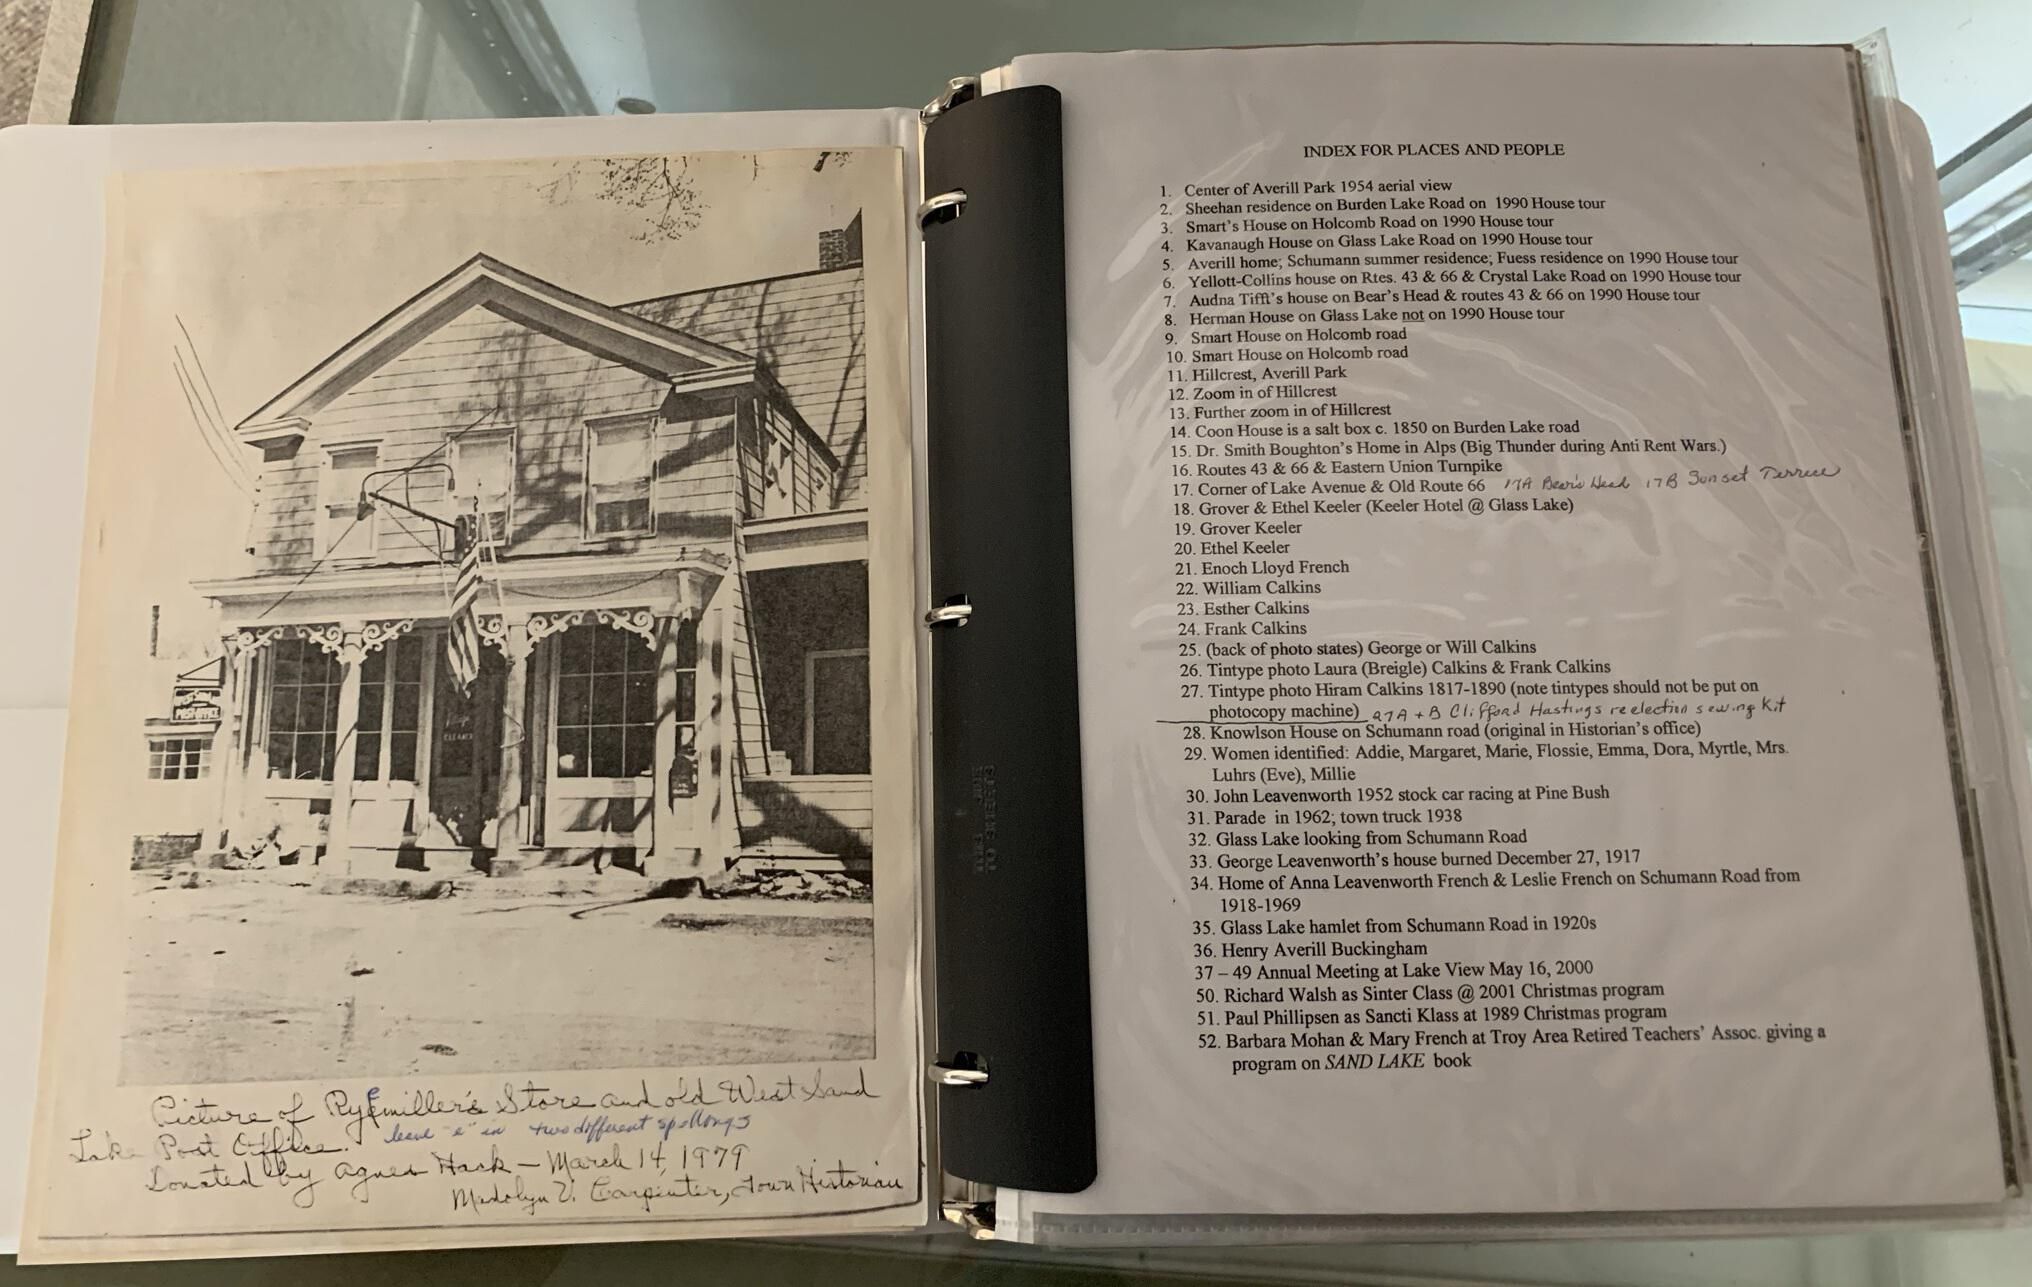 POST OFFICE
CLEANER
Picture of Ryemiller's Store and old West Sand
Lake Post Office. leave "e" in two different spellongs
Donated by Agnes Hack - March 14, 1979
Madolyn V. Carpenter, Town Historian
INDEX FOR PLACES AND PEOPLE
1. Center of Averill Park 1954 aerial view
2. Sheehan residence on Burden Lake Road on 1990 House tour
3. Smart's House on Holcomb Road on 1990 House tour
4. Kavanaugh House on Glass Lake Road on 1990 House tour
5. Averill home; Schumann summer residence; Fuess residence on 1990 House tour
6. Yellott-Collins house on Rtes. 43 & 66 & Crystal Lake Road on 1990 House tour
7. Audna Tifft's house on Bear's Head & routes 43 & 66 on 1990 House tour
8. Herman House on Glass Lake not on 1990 House tour
9. Smart House on Holcomb road
10. Smart House on Holcomb road
11. Hillcrest, Averill Park
12. Zoom in of Hillcrest
13. Further zoom in of Hillcrest
14. Coon House is a salt box c. 1850 on Burden Lake road
15. Dr. Smith Boughton's Home in Alps (Big Thunder during Anti Rent Wars.)
16. Routes 43 & 66 & Eastern Union Turnpike
17. Corner of Lake Avenue & Old Route 66 17A Bear's Head 17B Sunset Terrace
18. Grover & Ethel Keeler (Keeler Hotel @ Glass Lake)
19. Grover Keeler
20. Ethel Keeler
21. Enoch Lloyd French
22. William Calkins
23. Esther Calkins
24. Frank Calkins
25. (back of photo states) George or Will Calkins
26. Tintype photo Laura (Breigle) Calkins & Frank Calkins
27. Tintype photo Hiram Calkins 1817-1890 (note tintypes should not be put on
photocopy machine) 27A + B Clifford Hastings reelection sewing Kit
28. Knowlson House on Schumann road (original in Historian's office)
29. Women identified: Addie, Margaret, Marie, Flossie, Emma, Dora, Myrtle, Mrs.
Luhrs (Eve), Millie
30. John Leavenworth 1952 stock car racing at Pine Bush
31. Parade in 1962; town truck 1938
32. Glass Lake looking from Schumann Road
33. George Leavenworth's house burned December 27, 1917
34. Home of Anna Leavenworth French & Leslie French on Schumann Road from
1918-1969
35. Glass Lake hamlet from Schumann Road in 1920s
36. Henry Averill Buckingham
37 – 49 Annual Meeting at Lake View May 16, 2000
50. Richard Walsh as Sinter Class @ 2001 Christmas program
51. Paul Phillipsen as Sancti Klass at 1989 Christmas program
52. Barbara Mohan & Mary French at Troy Area Retired Teachers' Assoc. giving a
program on SAND LAKE book